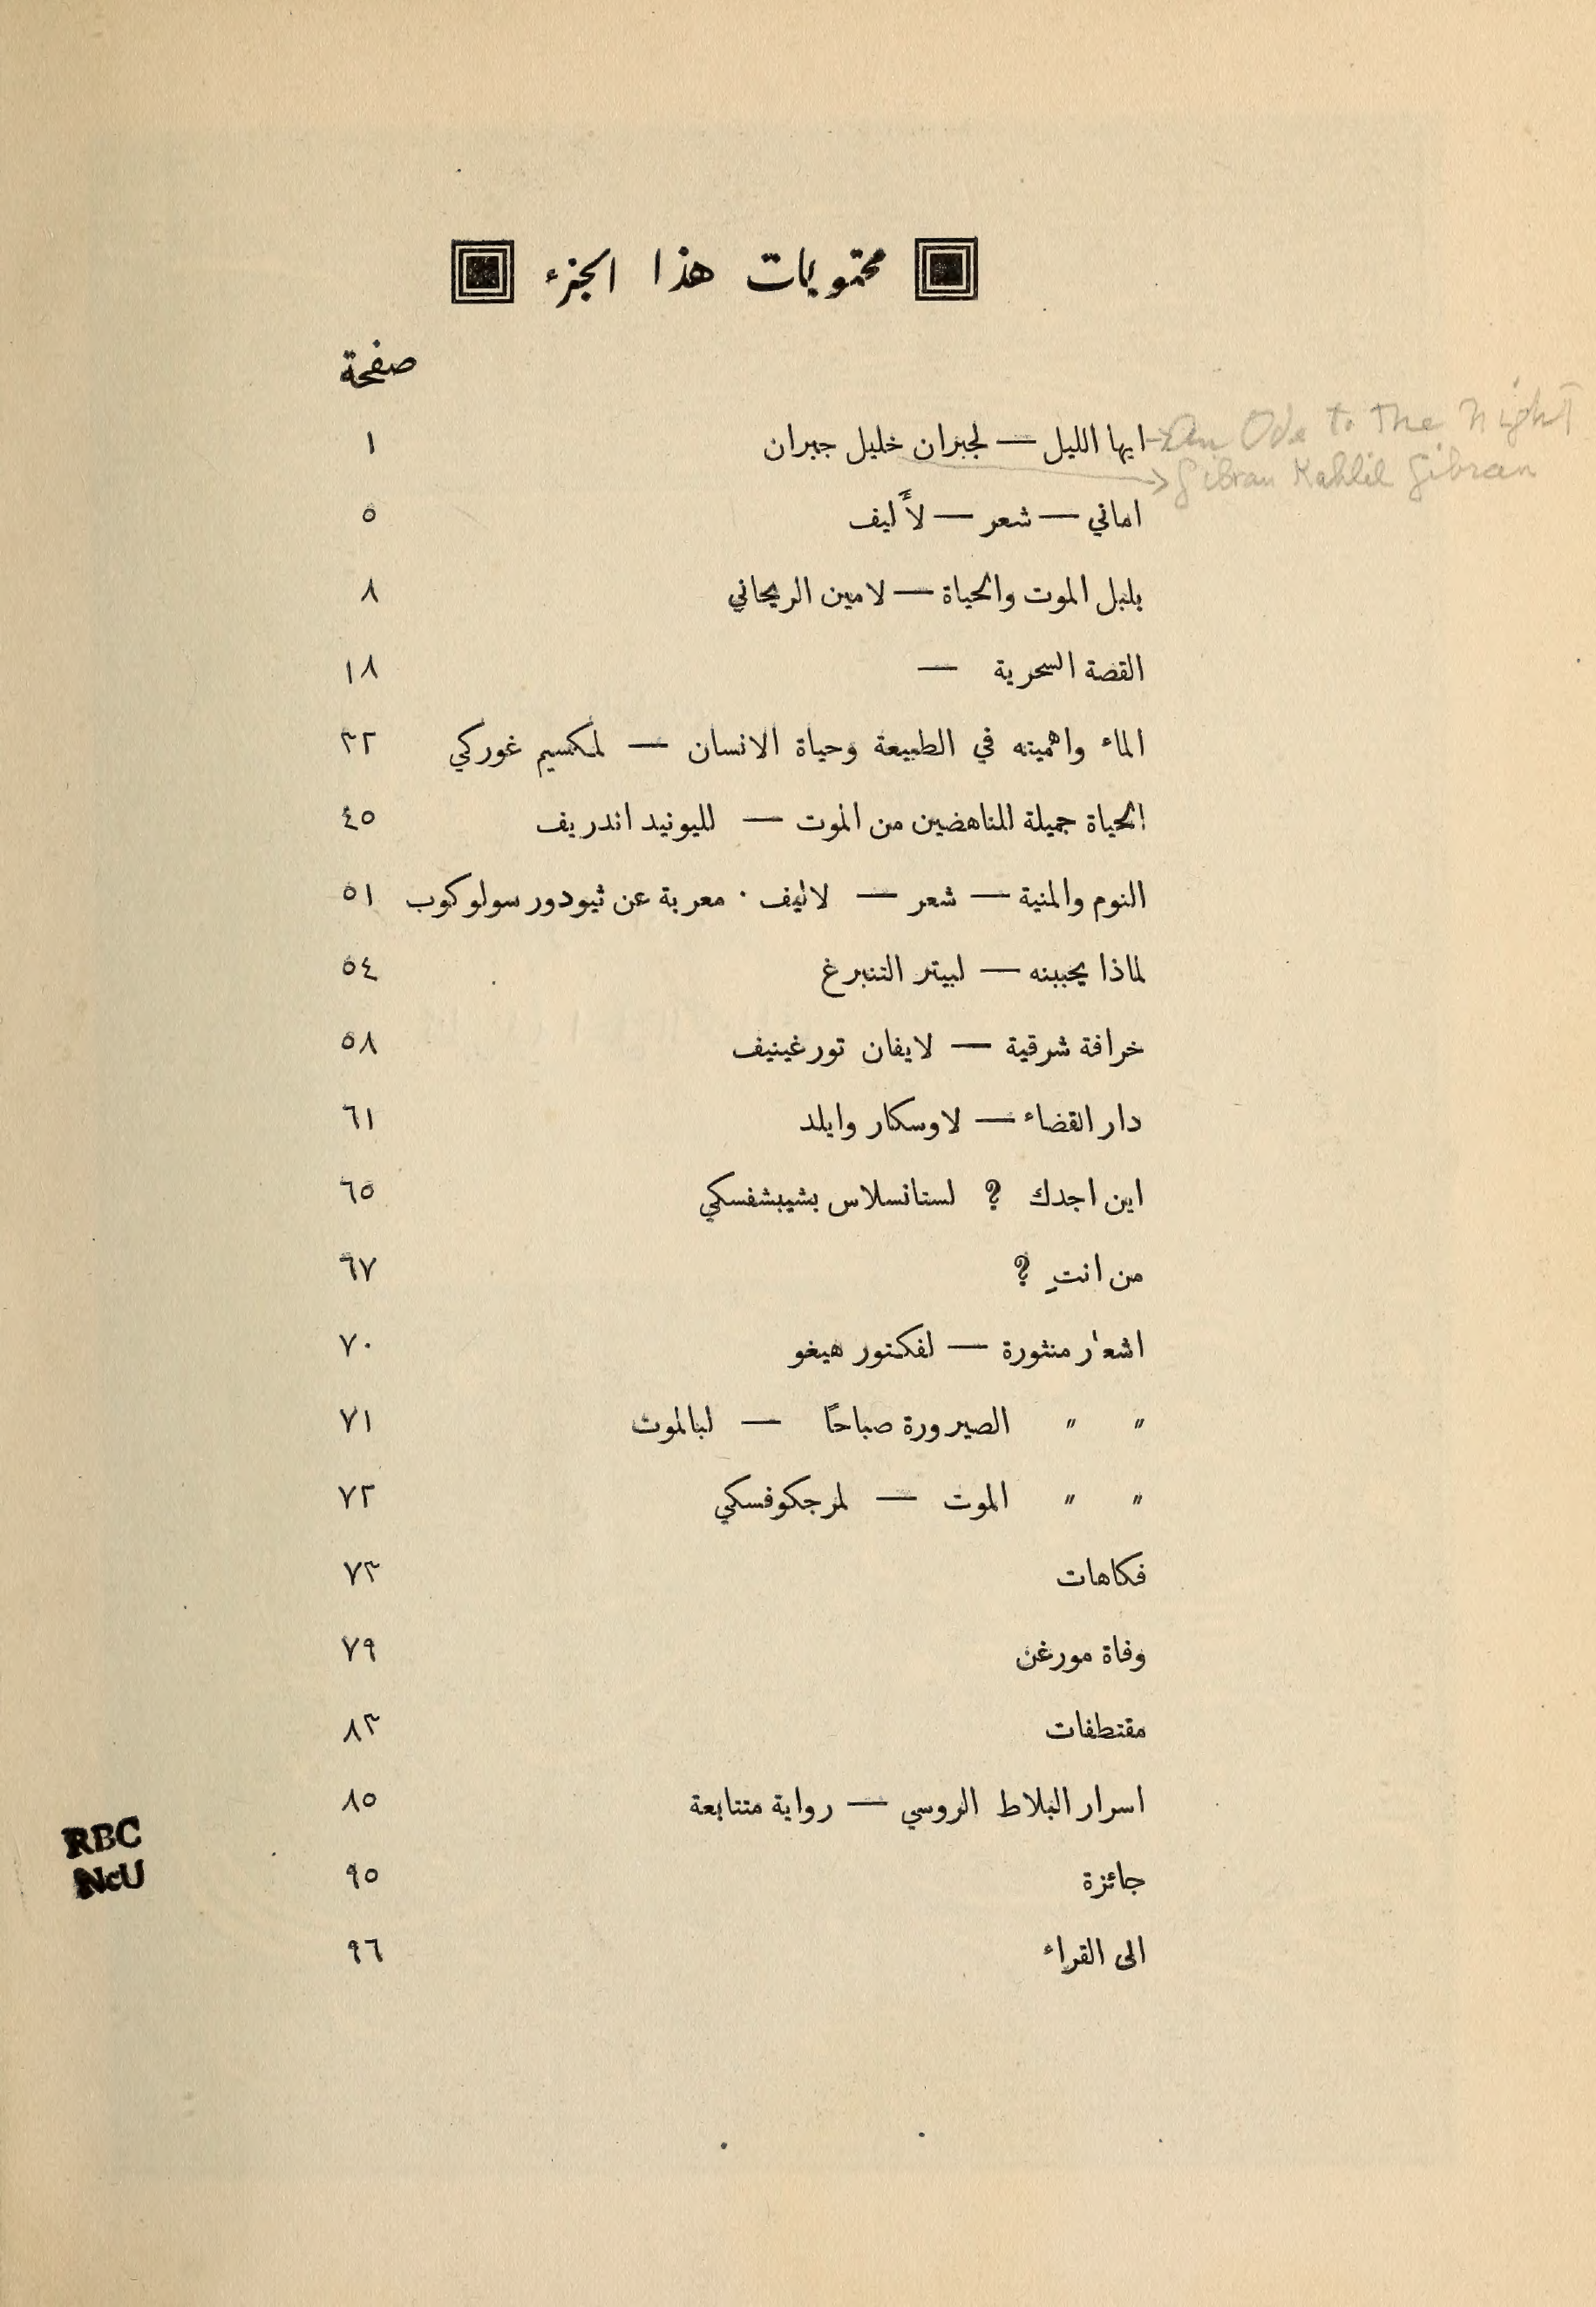 محتويات هذا الجزء
صفحة
ايها الليل — لجبران خليل جبران ١
An Ode to The Night
Gibran Kahlil Gibran
اماني — شعر — لأَليف ٥
بلبل الموت والحياة — لامين الريحاني ٨
القصة السحرية — ١٨
الماء واهميته في الطبيعة وحياة الانسان — لمكسيم غوركي ٣٢
الحياة جميلة للناهضين من الموت — لليونيد اندريف ٤٥
النوم والمنية — شعر — لاليف · معربة عن ثيودور سولوكوب ٥١
لماذا يحببنه — لبيتر التنبرغ ٥٤
خرافة شرقية — لايفان تورغينيف ٥٨
دار القضاء — لاوسكار وايلد ٦١
اين اجدك ؟ لستانسلاس بشيبشفسكي ٦٥
من انتِ ؟ ٦٧
اشعار منثورة — لفكتور هيغو ٧٠
〃 〃 الصيرورة صباحًا — لبالموت ٧١
〃 〃 الموت — لمرجكوفسكي ٧٢
فكاهات ٧٣
وفاة مورغن ٧٩
مقتطفات ٨٣
اسرار البلاط الروسي — رواية متتابعة ٨٥
جائزة ٩٥
الى القراء ٩٦
RBC
NcU